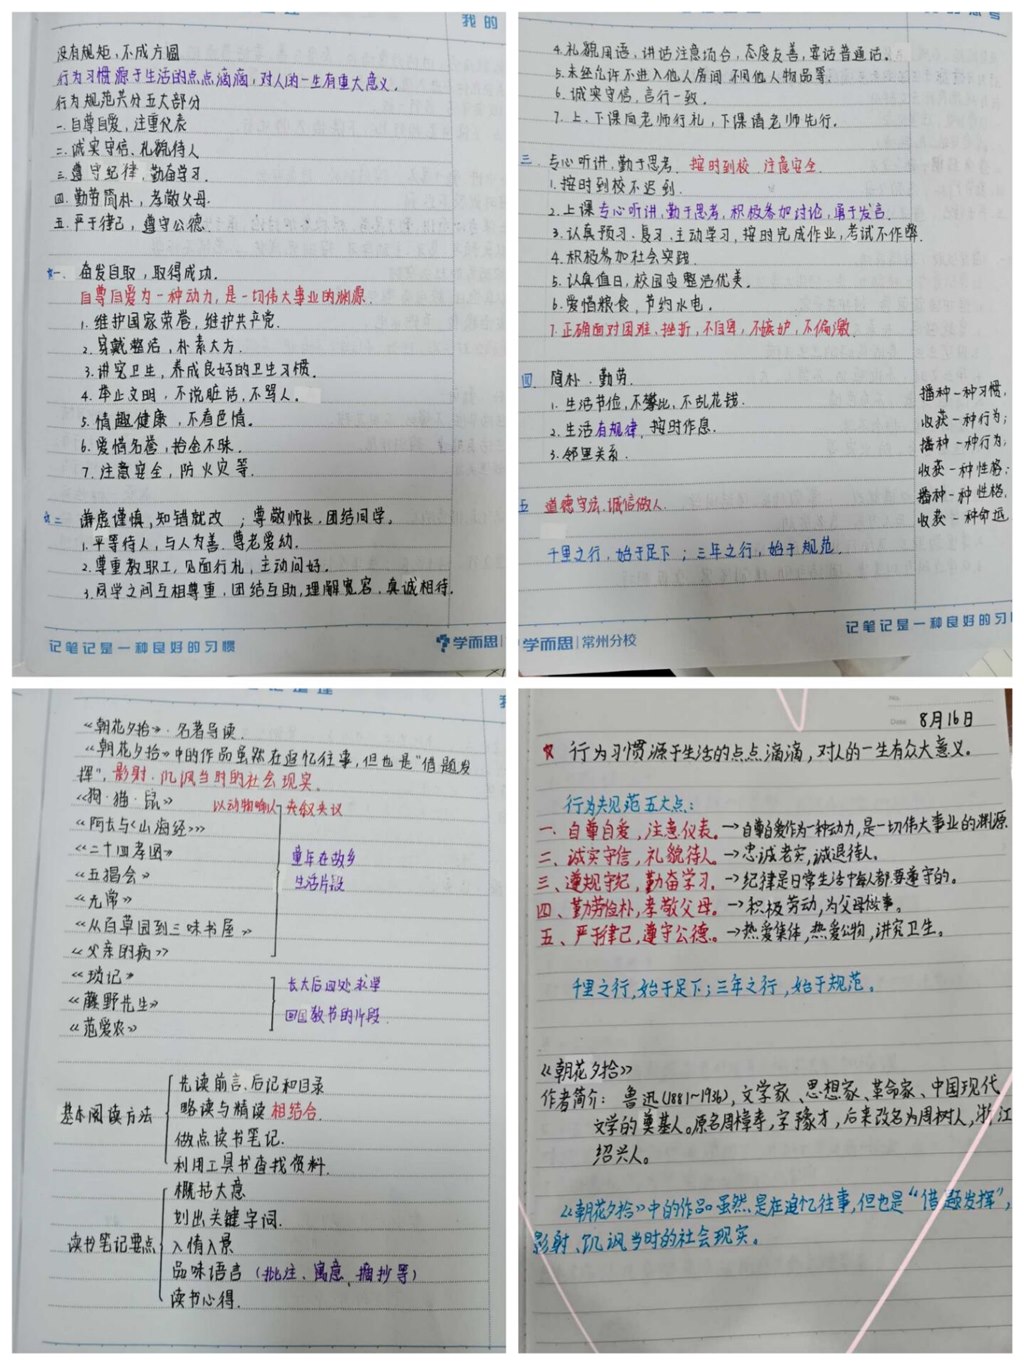 我的
没有规矩,不成方圆
行为习惯源于生活的点点滴滴,对人的一生有重大意义。
行为规范共分五大部分
一.自尊自爱,注重仪表
二.诚实守信、礼貌待人
三.遵守纪律,勤奋学习.
四.勤劳简朴,孝敬父母.
五.严于律己,遵守公德.
一. 奋发自取,取得成功.
自尊自爱为一种动力,是一切伟大事业的渊源.
1.维护国家荣誉,维护共产党.
2.穿戴整洁,朴素大方.
3.讲究卫生,养成良好的卫生习惯.
4.举止文明,不说脏话,不骂人.
5.情趣健康,不看色情.
6.爱惜名誉,拾金不昧.
7.注意安全,防火灾等.
二 谦虚谨慎,知错就改;尊敬师长,团结同学.
1.平等待人,与人为善.尊老爱幼.
2.尊重教职工,见面行礼,主动问好.
3.同学之间互相尊重,团结互助,理解宽容,真诚相待.
记笔记是一种良好的习惯
学而思
4.礼貌用语,讲话注意场合,态度友善,要话普通话.
5.未经允许不进入他人房间 不用他人物品等.
6.诚实守信,言行一致.
7.上、下课向老师行礼,下课请老师先行.
三. 专心听讲,勤于思考. 按时到校 注意安全.
1.按时到校不迟到.
2.上课专心听讲,勤于思考,积极参加讨论,勇于发言.
3.认真预习、复习、主动学习,按时完成作业,考试不作弊.
4.积极参加社会实践.
5.认真值日,校园变整洁优美.
6.爱惜粮食,节约水电.
7.正确面对困难、挫折,不自卑,不嫉妒,不偏激.
四 简朴.勤劳.
1.生活节俭,不攀比,不乱花钱.
2.生活有规律,按时作息.
3.邻里关系.
播种一种习惯,
收获一种行为;
播种一种行为,
收获一种性格;
播种一种性格,
收获一种命运
五 道德守法,诚信做人.
千里之行,始于足下;三年之行,始于规范.
学而思|常州分校
记笔记是一种良好的习
《朝花夕拾》·名著导读.
《朝花夕拾》中的作品虽然在追忆往事,但也是“借题发
挥”,影射、讥讽当时的社会现实.
《狗·猫·鼠》 以动物喻人 夹叙夹议
《阿长与<山海经>》
《二十四孝图》
《五猖会》
《无常》
《从百草园到三味书屋》
《父亲的病》
童年在故乡
生活片段
《琐记》
《藤野先生》
《范爱农》
长大后四处求学
回国教书的片段.
基本阅读方法
先读前言、后记和目录
略读与精读相结合.
做点读书笔记.
利用工具书查找资料.
读书笔记要点
概括大意
划出关键字词.
入情入景
品味语言(批注、寓意、摘抄等)
读书心得.
Date: 8月16日
行为习惯源于生活的点点滴滴,对人的一生有众大意义。
行为规范五大点:
一、自尊自爱,注意仪表。→自尊自爱作为一种动力,是一切伟大事业的渊源.
二、诚实守信,礼貌待人。→忠诚老实,诚退待人。
三、遵规守纪,勤奋学习。→纪律是日常生活中每人都要遵守的。
四、勤劳俭朴,孝敬父母。→积极劳动,为父母做事。
五、严于律己,遵守公德。→热爱集体,热爱公物,讲究卫生。
千里之行,始于足下;三年之行,始于规范。
《朝花夕拾》
作者简介: 鲁迅(1881~1936),文学家、思想家、革命家、中国现代
文学的奠基人。原名周樟寿,字豫才,后来改名为周树人,浙江
绍兴人。
《朝花夕拾》中的作品虽然是在追忆往事,但也是“借题发挥”,
影射、讥讽当时的社会现实。